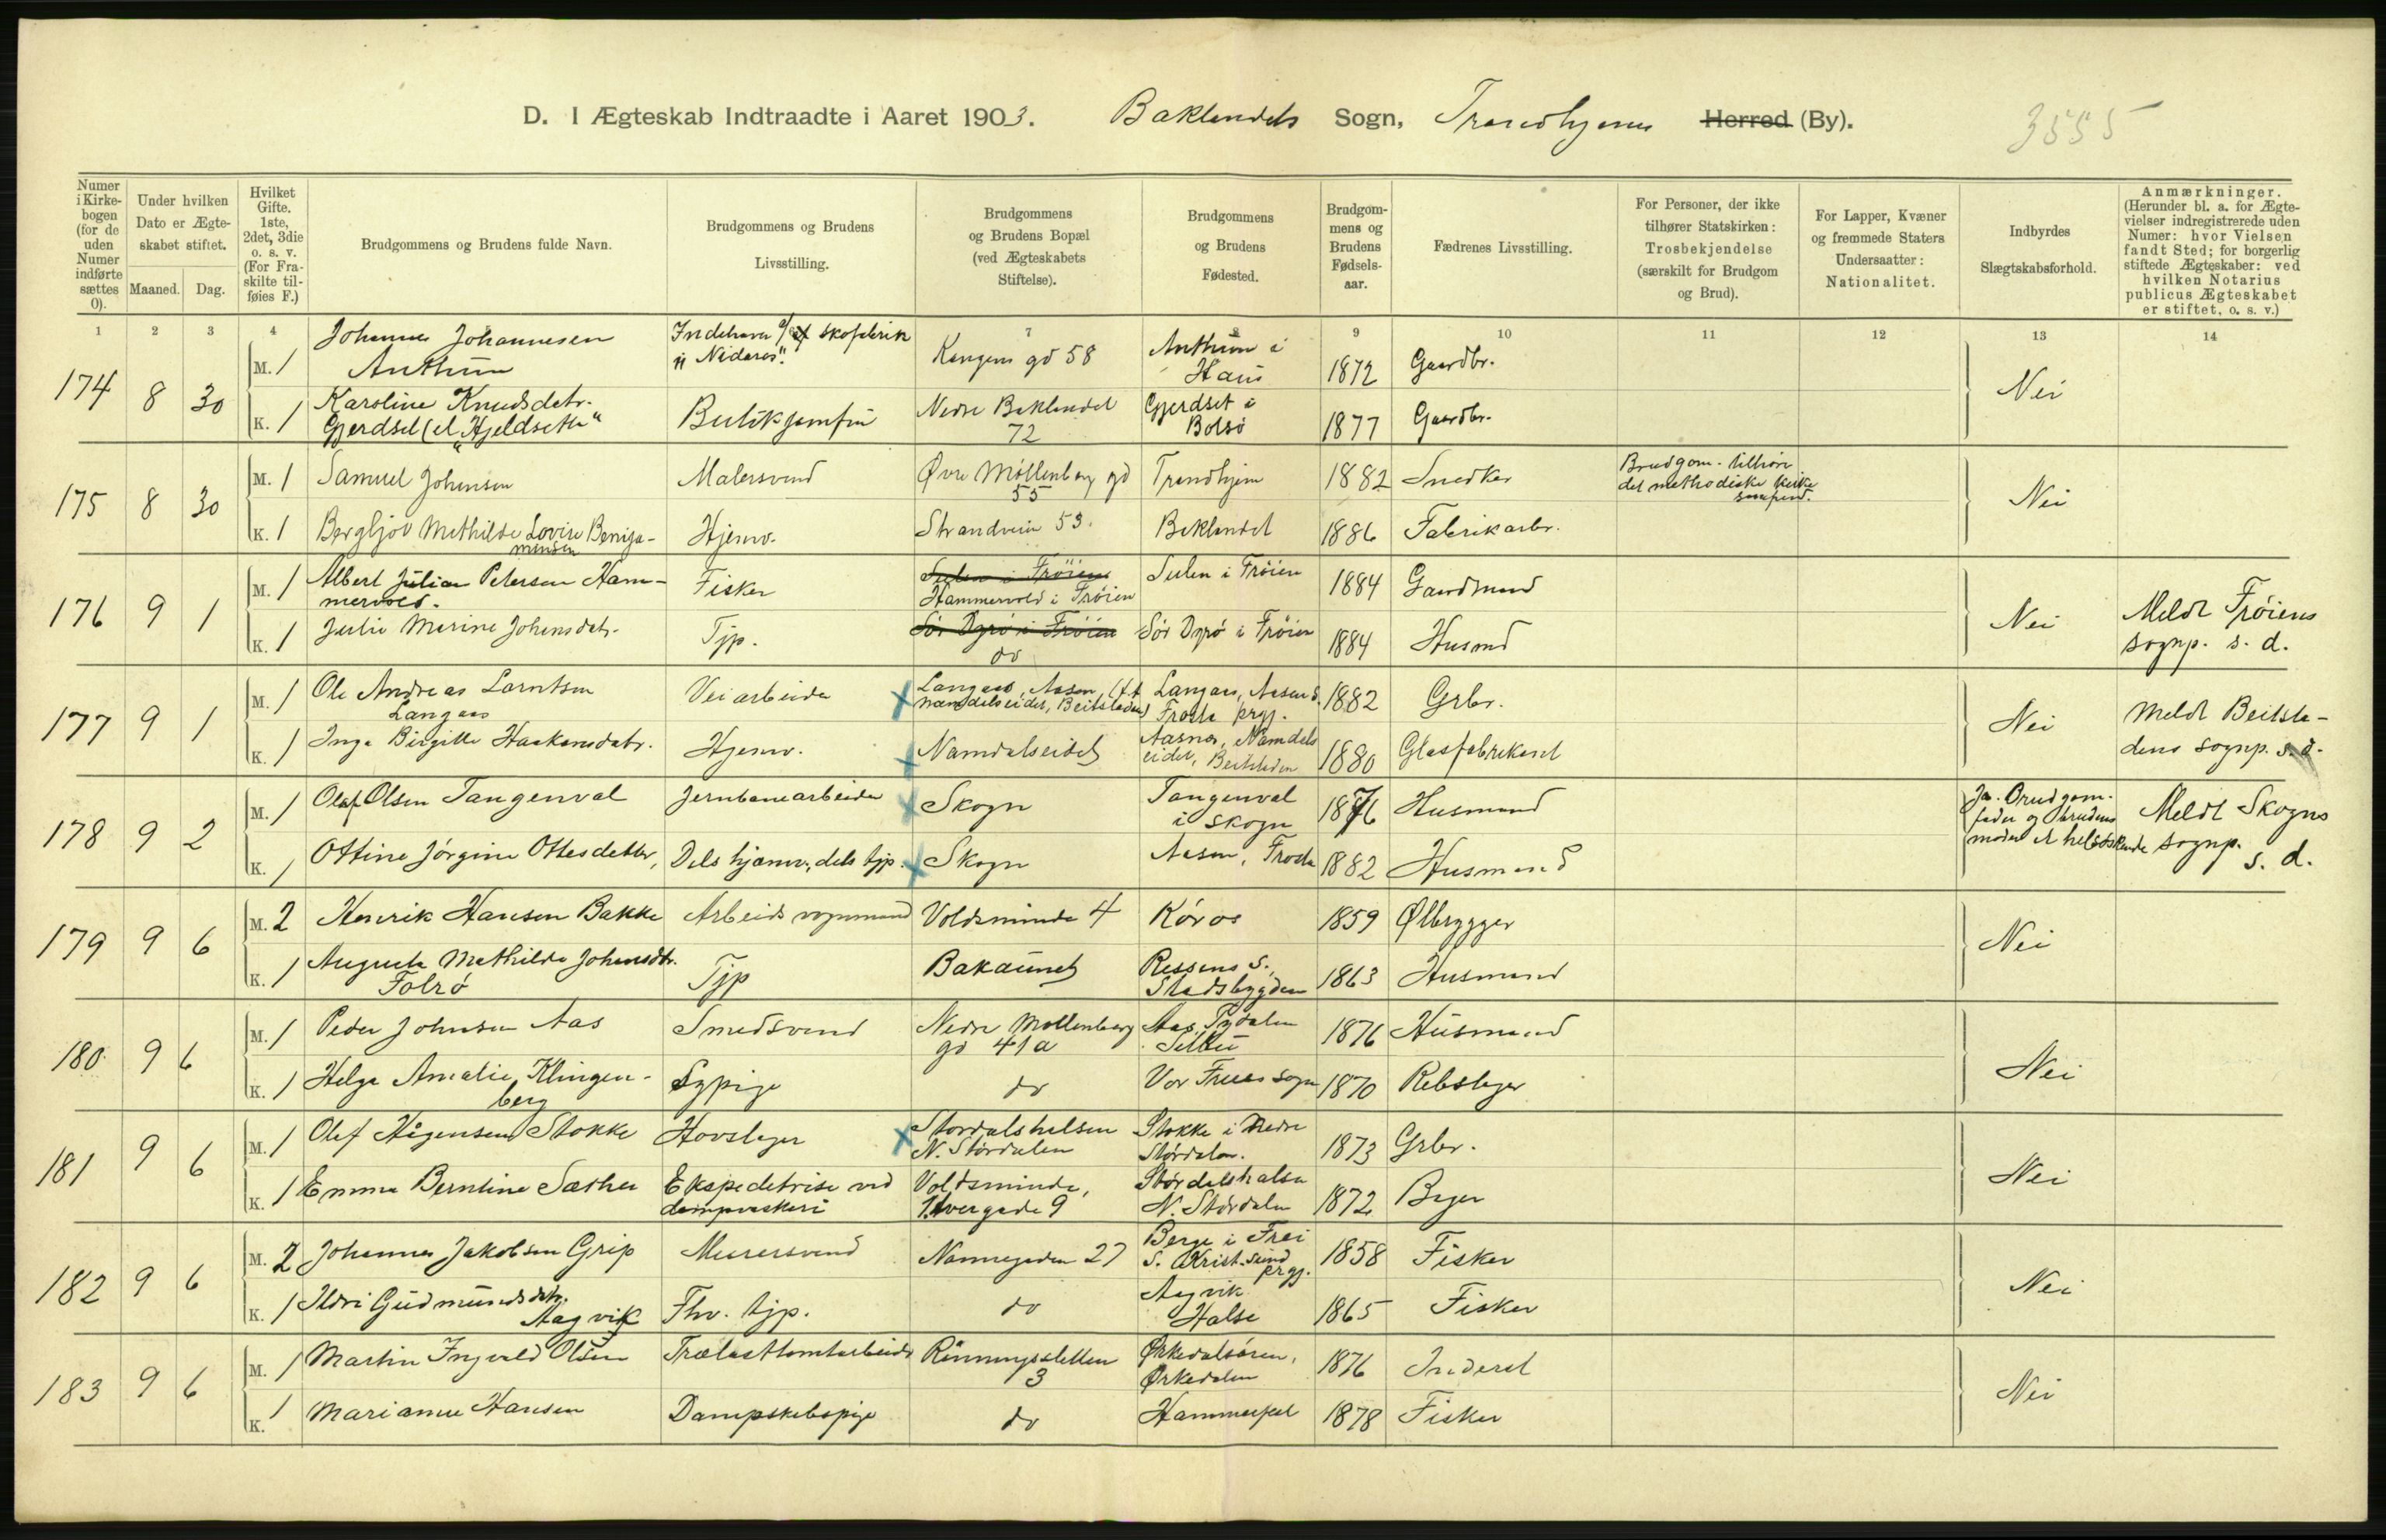 D. I Ægteskab Indtraadte i Aaret 1903. Baklandets Sogn, Trondhjems Herred (By). 3555
Numer i Kirkebogen (for de uden Numer indførte sættes 0).
Under hvilken Dato er Ægteskabet stiftet.
Maaned. Dag.
Hvilket Gifte. 1ste, 2det, 3die o. s. v. (For Fraskilte tilføies F.)
Brudgommens og Brudens fulde Navn.
Brudgommens og Brudens Livsstilling.
Brudgommens og Brudens Bopæl (ved Ægteskabets Stiftelse).
Brudgommens og Brudens Fødested.
Brudgommens og Brudens Fødselsaar.
Fædrenes Livsstilling.
For Personer, der ikke tilhører Statskirken: Trosbekjendelse (særskilt for Brudgom og Brud).
For Lapper, Kvæner og fremmede Staters Undersaatter: Nationalitet.
Indbyrdes Slægtskabsforhold.
Anmærkninger. (Herunder bl. a. for Ægtevielser indregistrerede uden Numer: hvor Vielsen fandt Sted; for borgerlig stiftede Ægteskaber: ved hvilken Notarius publicus Ægteskabet er stiftet, o. s. v.)
1 2 3 4 7 8 9 10 11 12 13 14
174 8 30 M. 1 Johannes Johannesen Anthun Indehaver af skofabrik "Nidaros". Kongens gd 58 Anthun i Haus 1872 Gaardbr. Nei
K. 1 Karoline Knudsdatr. Gjerdset (el. "Hjeldsette" Butikjomfru Nedre Baklandet 72 Gjerdset i Bolsö 1877 Gaardbr.
175 8 30 M. 1 Samuel Johansen Malersvend Øvre Möllenberg gd 55 Trondhjem 1882 Snedker Brudgom. tilhöre det methodiske kirkesamfund. Nei
K. 1 Bergljot Mathilde Lovise Benjaminsen Hjemv. Strandveien 53. Baklandet 1886 Fabrikarbr.
176 9 1 M. 1 Albert Julian Petersen Hammervold. Fisker Sulen i Fröien Hammervold i Fröien Sulen i Fröien 1884 Gaardmand Nei Meldt Fröiens sognp. s. d.
K. 1 Julie Marine Johansdatr. Tjp. Sör Dyrö i Fröien do Sör Dyrö i Fröien 1884 Husmd
177 9 1 M. 1 Ole Andreas Larntsen Langaas Veiarbeider Langaas, Aasen, (f.t. Namdalseidet, Beitstaden) Langaas, Aasen s. Frosta prgj. 1882 Grbr. Nei Meldt Beitstadens sognp. s. d.
K. 1 Inga Birgitte Haakonsdatr. Hjemv. Namdalseidet Aasnes, Namdalseidet, Beitstaden 1880 Glasfabrikant
178 9 2 M. 1 Olaf Olsen Tangenval Jernbanearbeider Skogn Tangenval i Skogn 1876 Husmand Ja. Brudgom. fader og brudens moder er helsöskende Meldt Skogns sognp. s. d.
K. 1 Ottine Jörgine Ottesdatter, Dels hjemv., dels tjp. Skogn Aasen, Frosta 1882 Husmand
179 9 6 M. 2 Henrik Hansen Bakke Arbeids vognmand Voldsminde 4 Röros 1859 Ølbrygger Nei
K. 1 Augusta Mathilde Johansdtr. Folrö Tjp Bakaunet Rissens s., Stadsbygden 1863 Husmand
180 9 6 M. 1 Peder Johnsen Aas Smedsvend Nedre Möllenberg gd 41a Aas, Tydalen Selbu 1876 Husmand Nei
K. 1 Helga Amalie Klingenberg Sypige do Vor Frues sogn 1870 Rebslager
181 9 6 M. 1 Olaf Hågensen Stokke Hovslager Stördalshalsen N. Stördalen Stokke i Nedre Stördalen. 1873 Grbr. Nei
K. 1 Emma Berntine Sæther Ekspedetrise ved dampvaskeri Voldsminde, Tvergade 9 Stördalshalsen N. Stördalen 1872 Bager
182 9 6 M. 2 Johannes Jakobsen Grip Murersvend Nannegaden 27 Berge i Frei s. Krist.sund prgj. 1858 Fisker Nei
K. 1 Ildri Gudmundsdtr. Aagvik Fhv. tjp. do Aagvik Halse 1865 Fisker
183 9 6 M. 1 Martin Ingvald Olsen Trælasttomtarbeider Rönningsletten 3 Ørkedalsören, Ørkedalen 1876 Inderst Nei
K. 1 Marianne Hansen Dampskibspige do Hammerfest 1878 Fisker